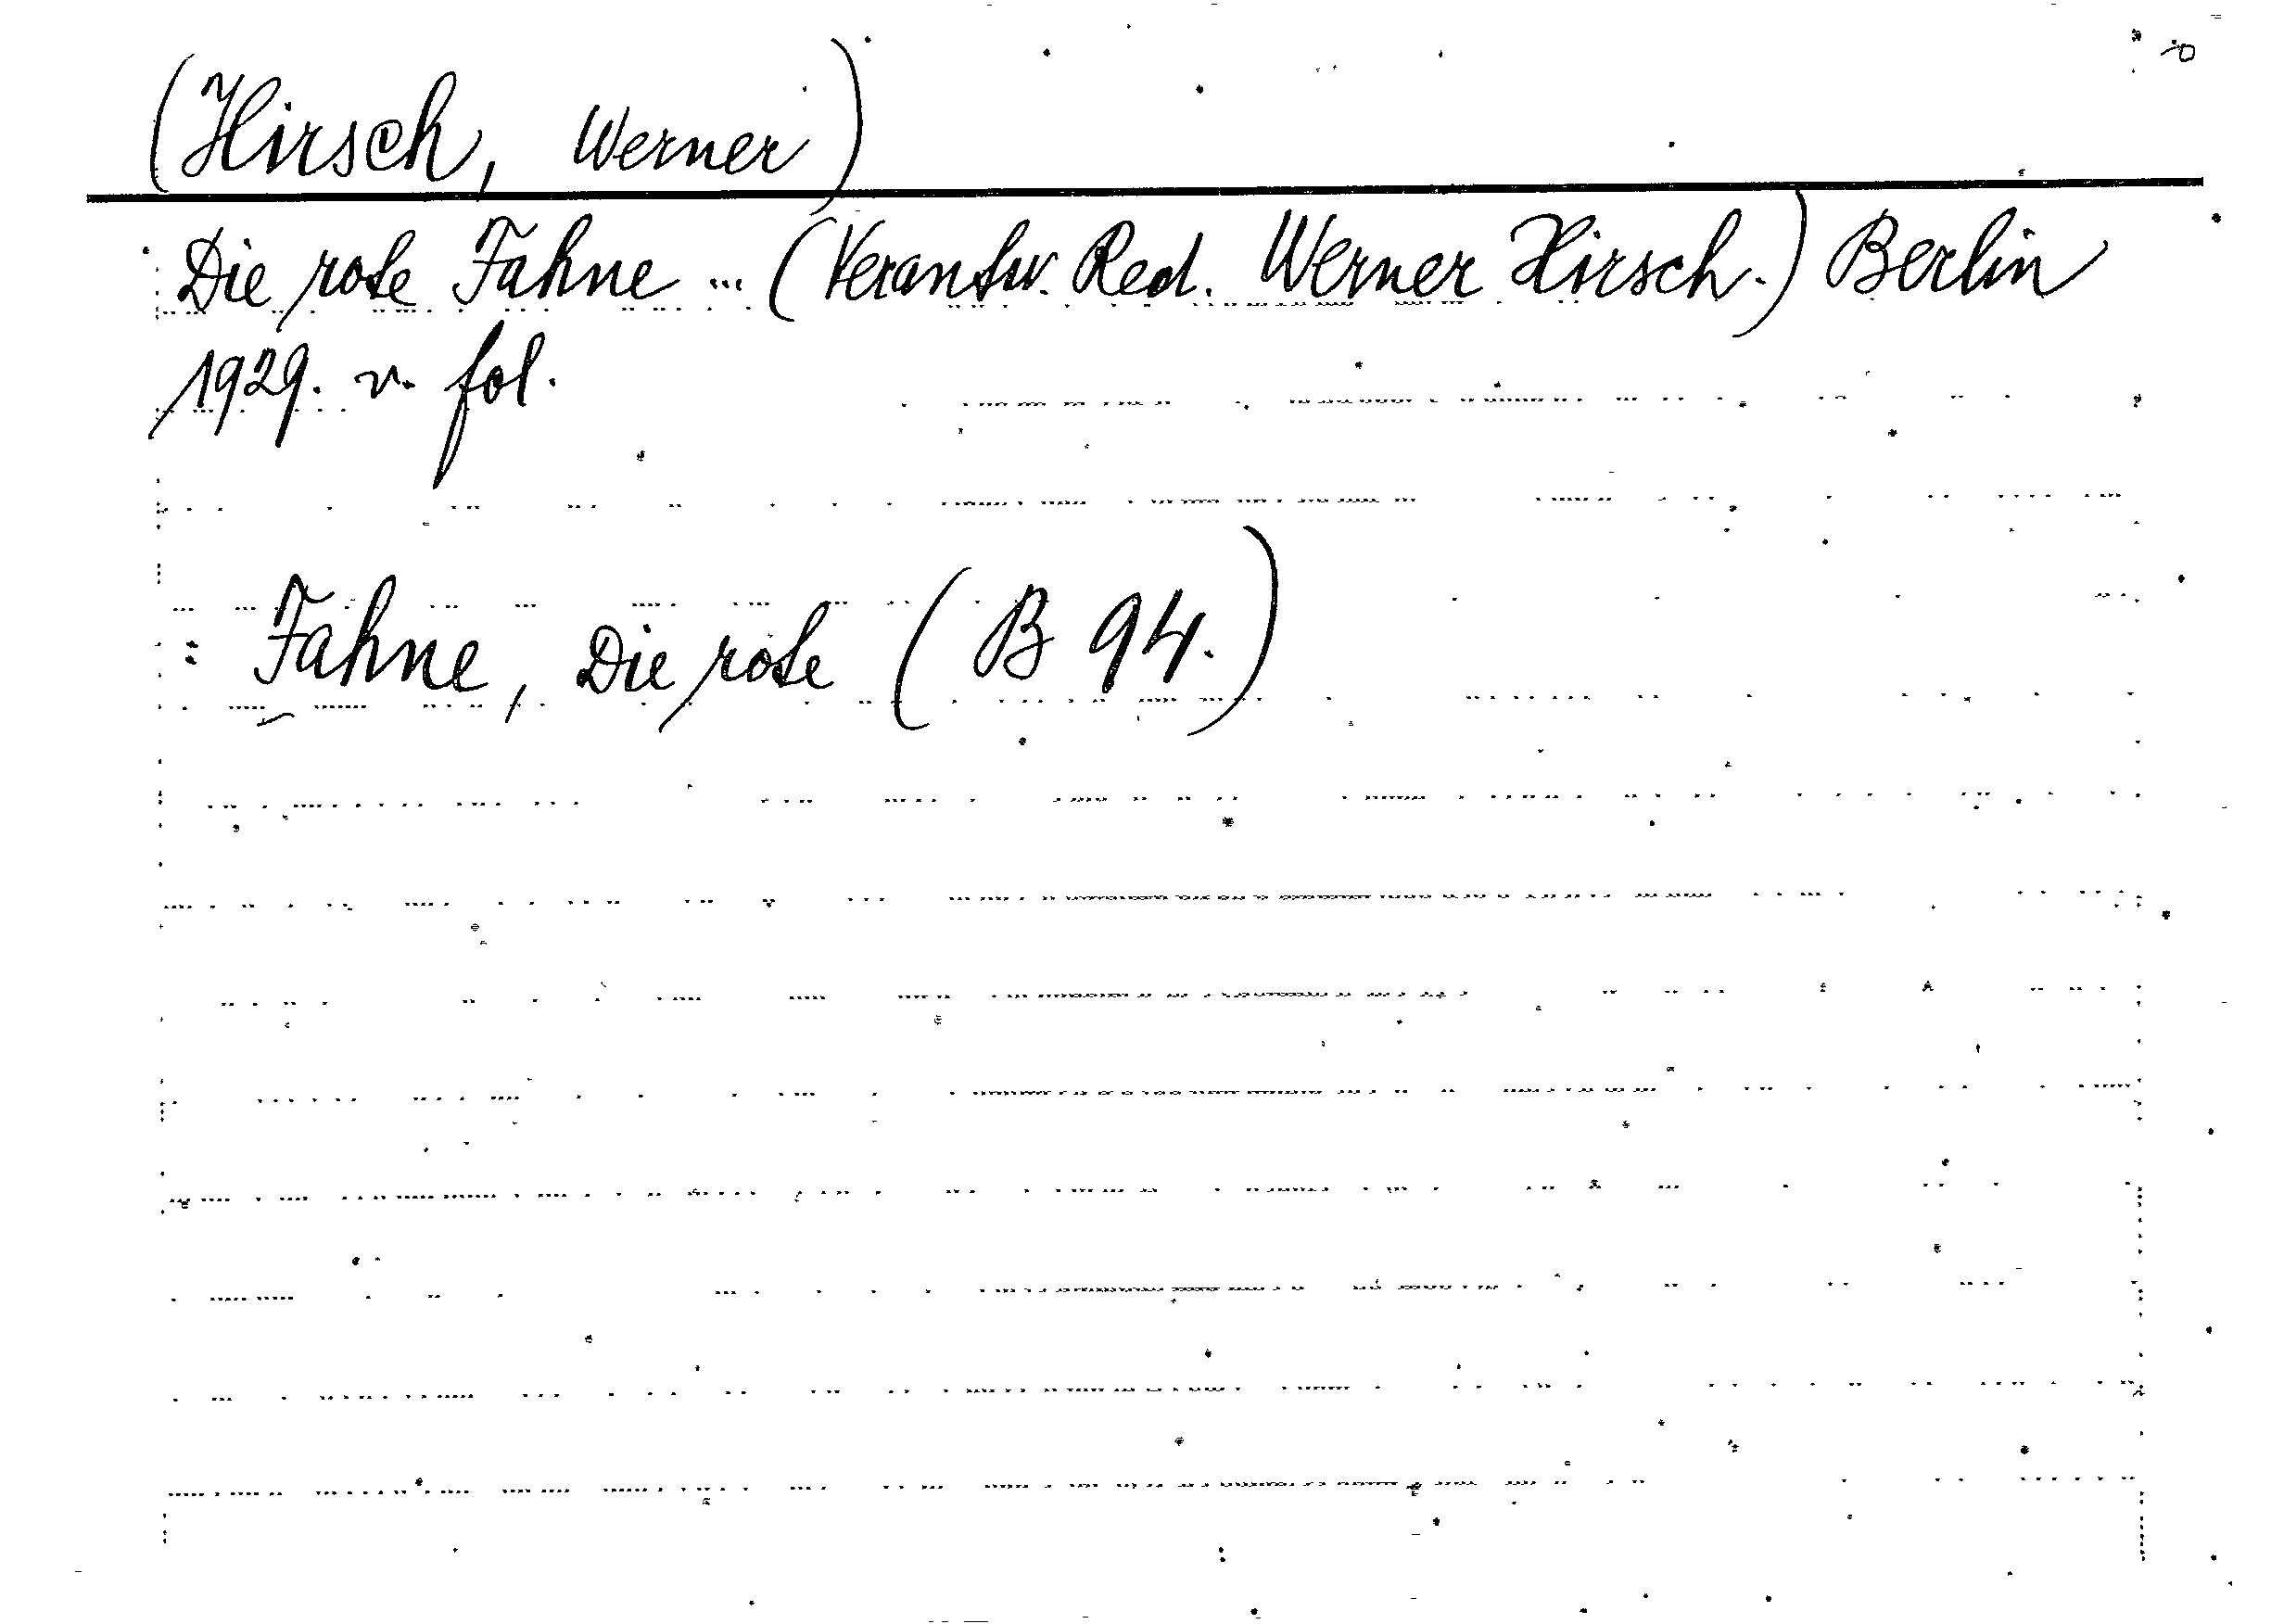 (Hirsch, Werner)
Die rote Fahne ... (Verantw. Red. Werner Hirsch.) Berlin
1929. v. fol.
: Fahne, Die rote (B 94.)